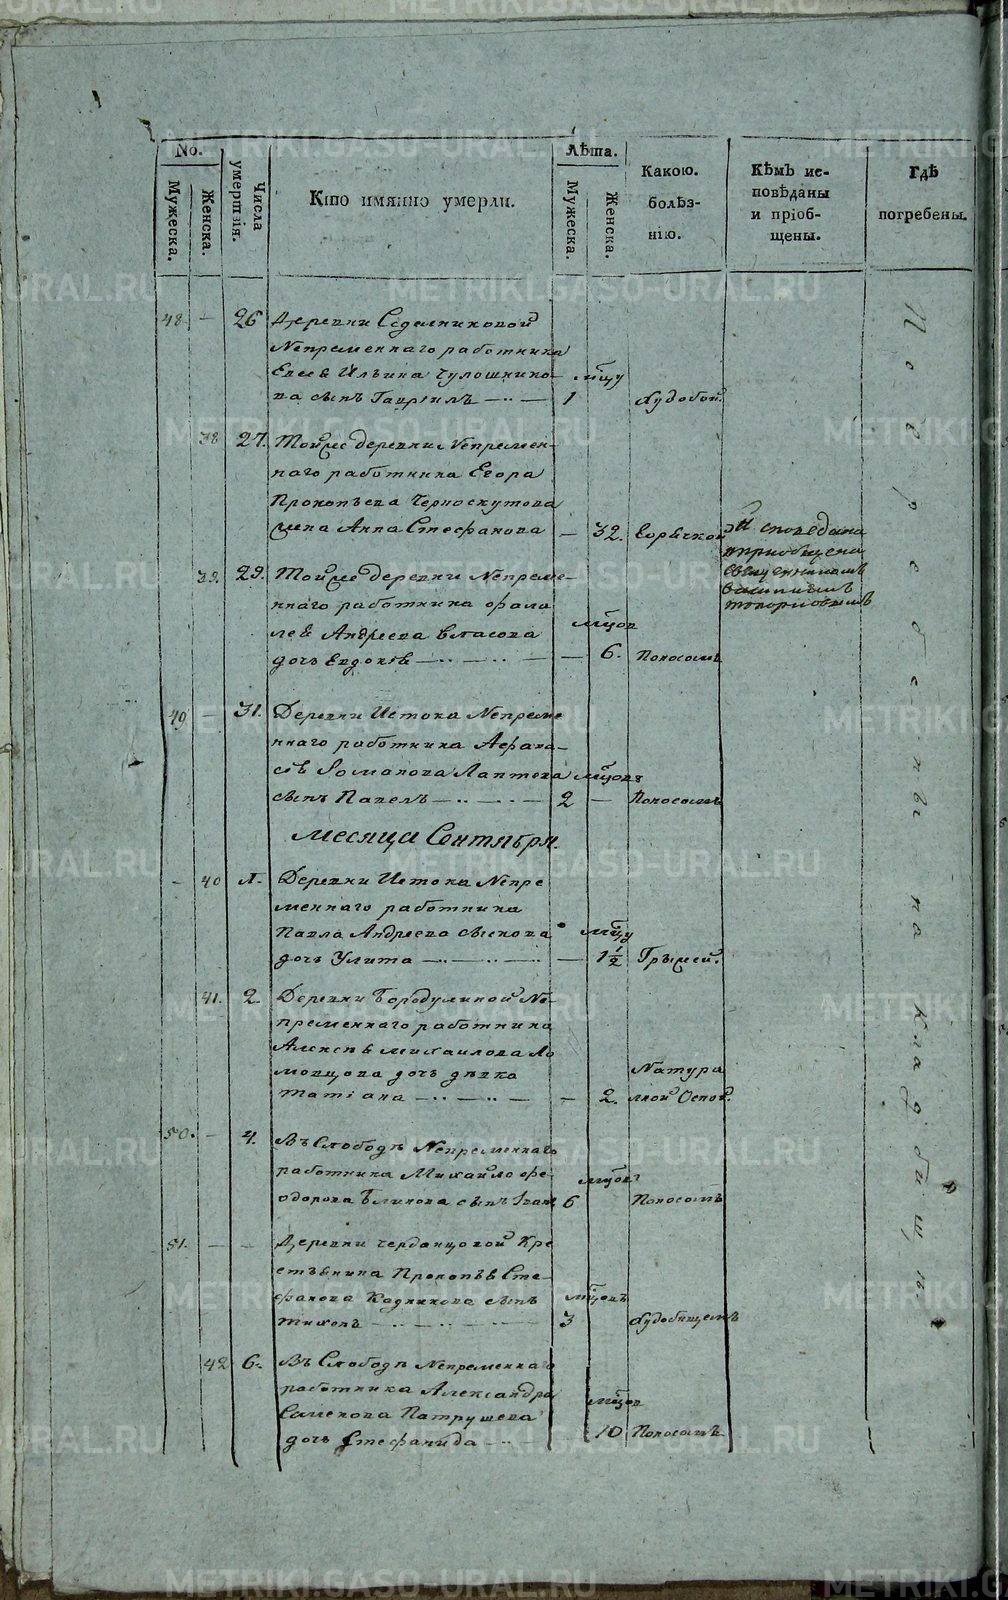 No.
Мужеска.
Женска.
Числа умершвія.
Кто имянно умерли.
Лѣта.
Мужеска.
Женска.
Какою.
болѣз-
нію.
Кѣмъ ис-
повѣданы
и пріоб-
щены.
Гдѣ
погребены.
48. — 26 Деревни Седельниковой
Непременнаго работника
Евсея Ильина Чулошнико- мцу
ва сынъ Гавріилъ — 1 Худобой.
38 27. Той же деревни Непремен-
наго работника Егора
Прокопьева Черноскутова
жена Анна Стефанова — 32. Горячкой
Исповедана
и приобщена
священником
Топорковымъ
39. 29. Той же деревни Непреме-
ннаго работника Фала
лея Андреева Власова мцов
дочь Евдокія — 6. Поносомъ
49 — 31. Деревни Истока Непреме
ннаго работника Афана-
сія Романова Лаптева мцовъ
сынъ Павелъ — 2 — Поносомъ
Месяца Сентября.
— 40 1. Деревни Истока Непре
меннаго работника
Павла Андреева мцу
дочь Улита — 1½ Грыжей.
41. 2. Деревни Бородулиной Не-
пременнаго работника
Алексея Михаилова Ло
мовцова дочь девка Натура
Татіана — 2. лной Оспой.
50. — 4. Въ Слободе Непременнаго
работника Михайло Фе- мцовъ
одорова Блинова сынъ Іванъ 6 Поносомъ
51. — — Деревни Черданцовой Кре
стьянина Прокопья Сте-
фанова Кадникова сынъ мцовъ
Тихонъ — 3 Худобищемъ
42 6. Въ Слободе Непременнаго
работника Александра
Семенова Патрушева мцов
дочь Стефанида — 10 Поносомъ
На кладбищѣ.
METRIKI.GASO-URAL.RU